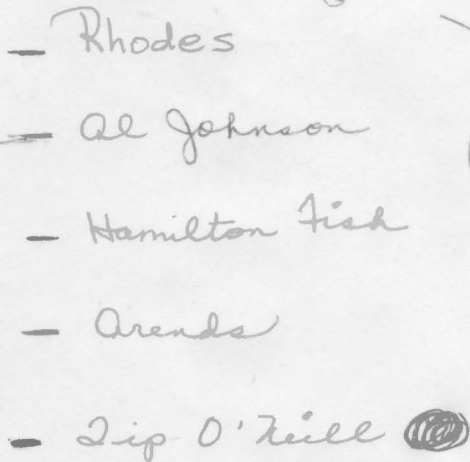 - Rhodes
- Al Johnson
- Hamilton Fish
- Arends
- Tip O'Neill